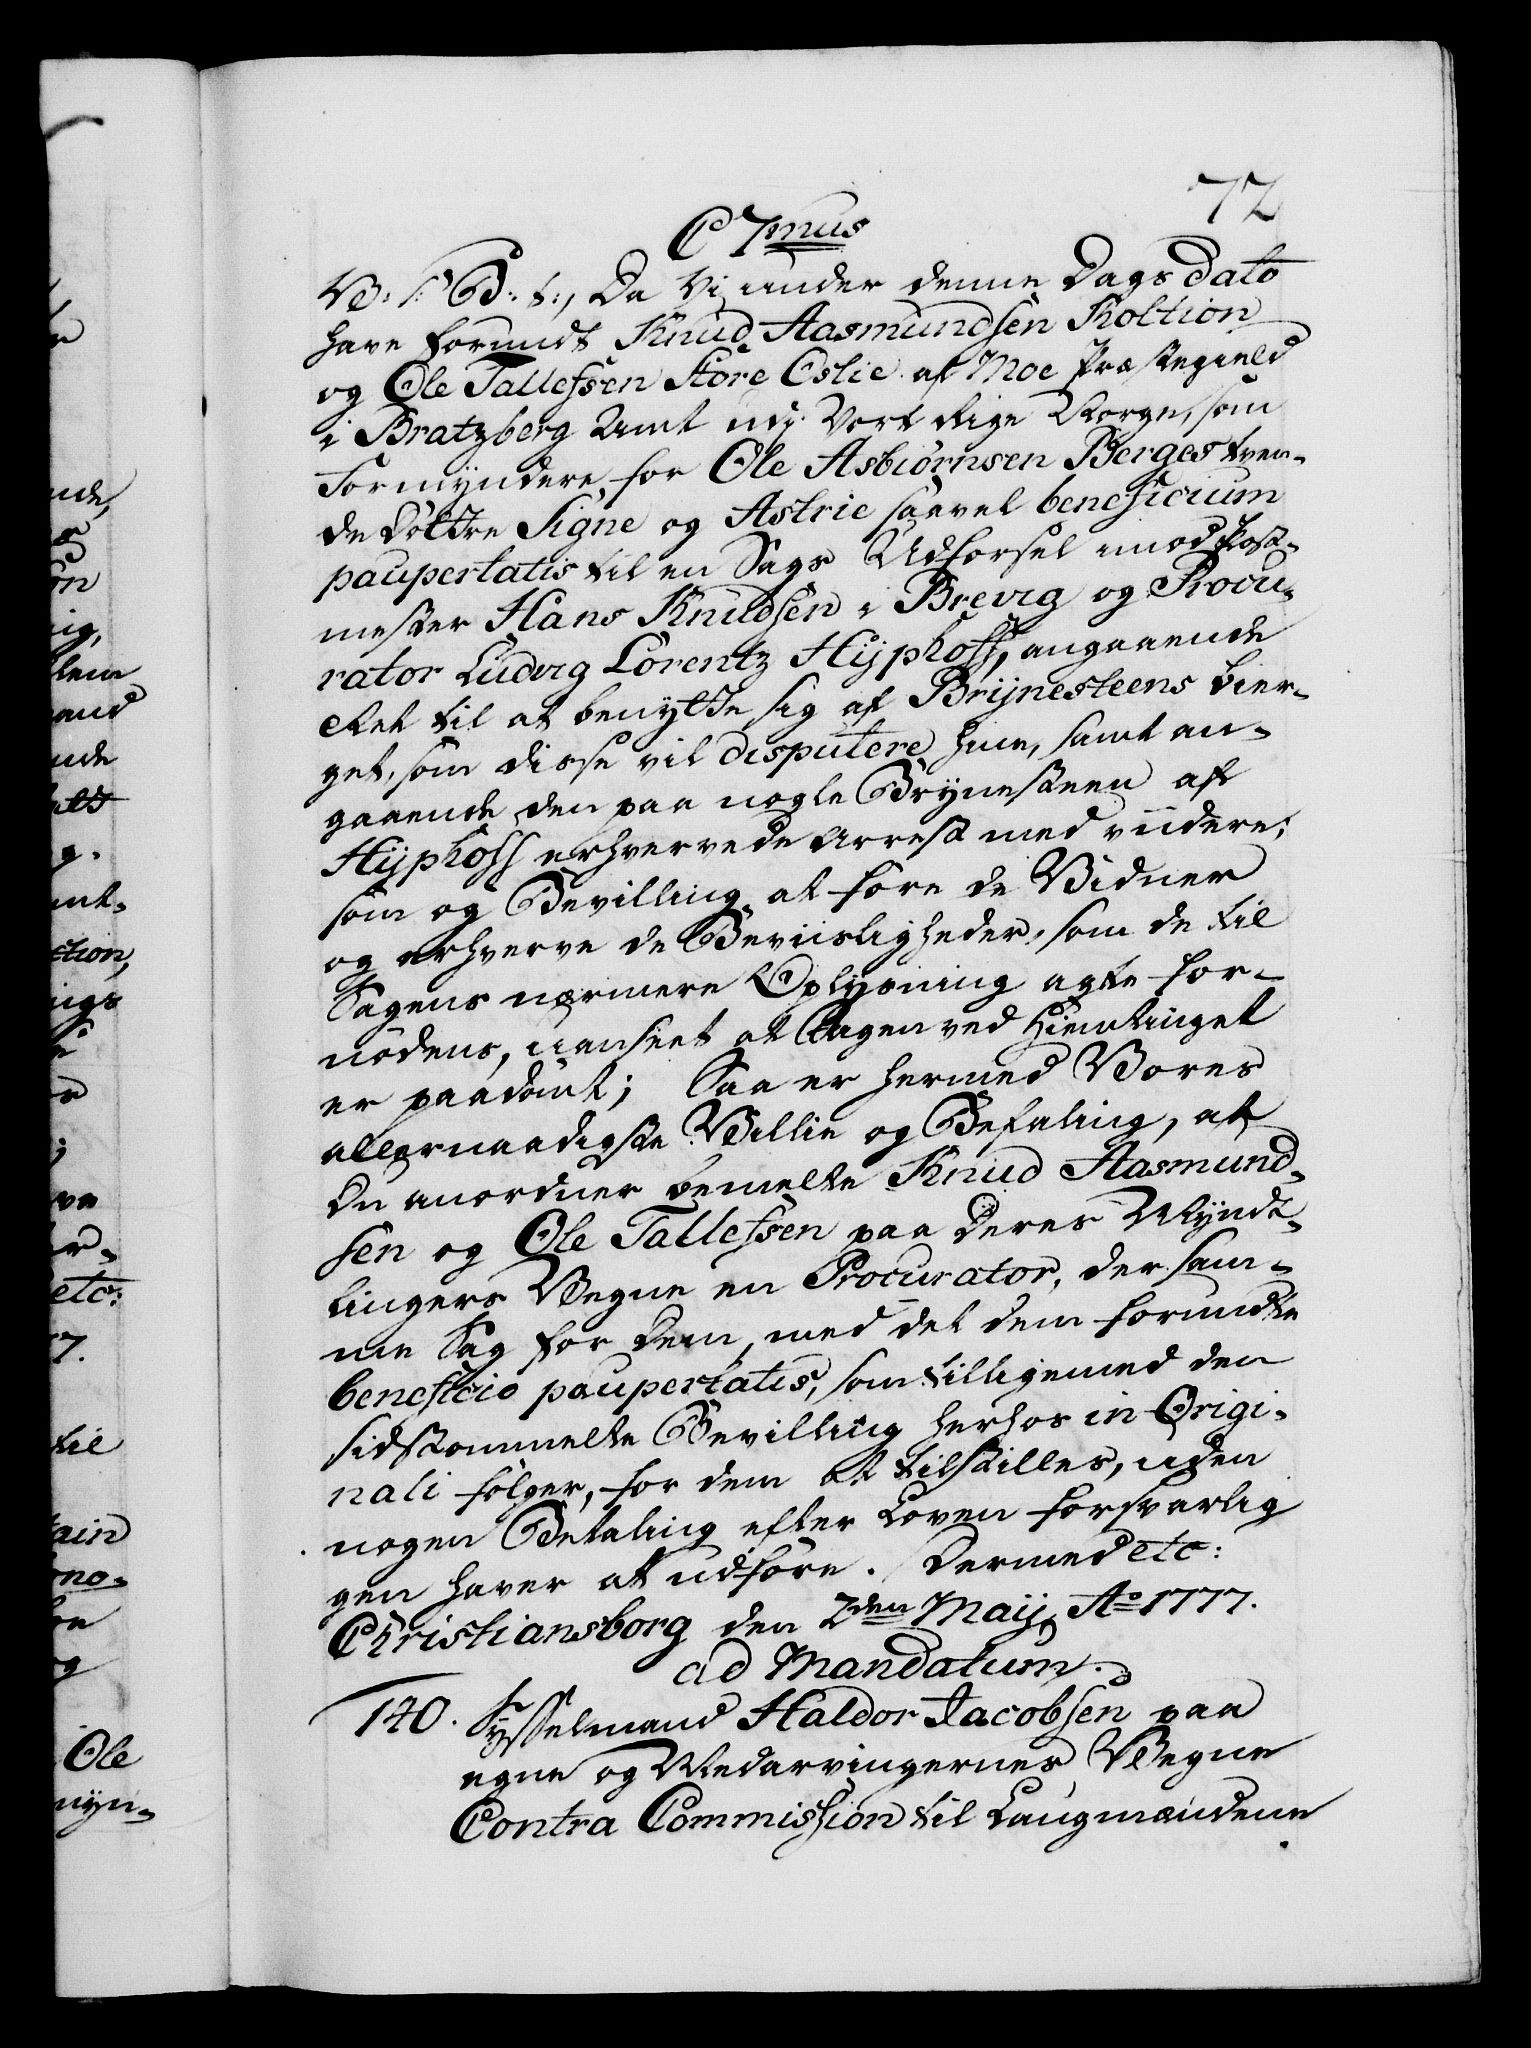 72
C 7mus
V: S: G: T:, Da Vi under denne Dags dato
have forundt Knud Aasmundsen Koltion
og Ole Tallefsen Store Eslie af Moe Præstegield
i Bratzberg Amt udj Vort Rige Norge, som
Formyndere for Ole Asbiørnsen Berges tven-
de Døttre Signe og Astrie saavel beneficium
paupertatis til en Sags Udførsel imod Post-
mester Hans Knudsen i Brevig og Procu-
rator Ludvig Lorentz Hyphoff, angaaende
Ret til at benytte sig af Brynesteens Bier-
get, som disse vil disputere hine, samt an-
gaaende den paa nogle Brynesteen af
Hyphoff erhvervede Arrest med viidere;
som og Bevilling at føre de Vidner
og erhverve de Beviisligheder, som de til
Sagens nærmere Oplysning agte for-
nødens, uanseet at Sagen ved Hiemtinget
er paadømt; Saa er hermed Vores
allernaadigste Villie og Befaling, at
Du anordner bemelte Knud Aasmund-
sen og Ole Tallefsen paa Deres Mynd-
lingers Vegne en Procurator, der sam-
me Sag for Dem, med det dem forundte
beneficio paupertatis, som tilligemed den
sidstommelte Bevilling herhos in Origi-
nali følger, for dem at tilstilles, uden
nogen Betaling efter Loven forsvarlig
gen haver at udføre. Dermed etc:
Christiansborg den 2den Maij Ao 1777.
ad Mandatum.
140. Sysselmand Haldor Jacobsen paa
egne og Medarvingernes Vegne
Contra Commission til Laugmændene